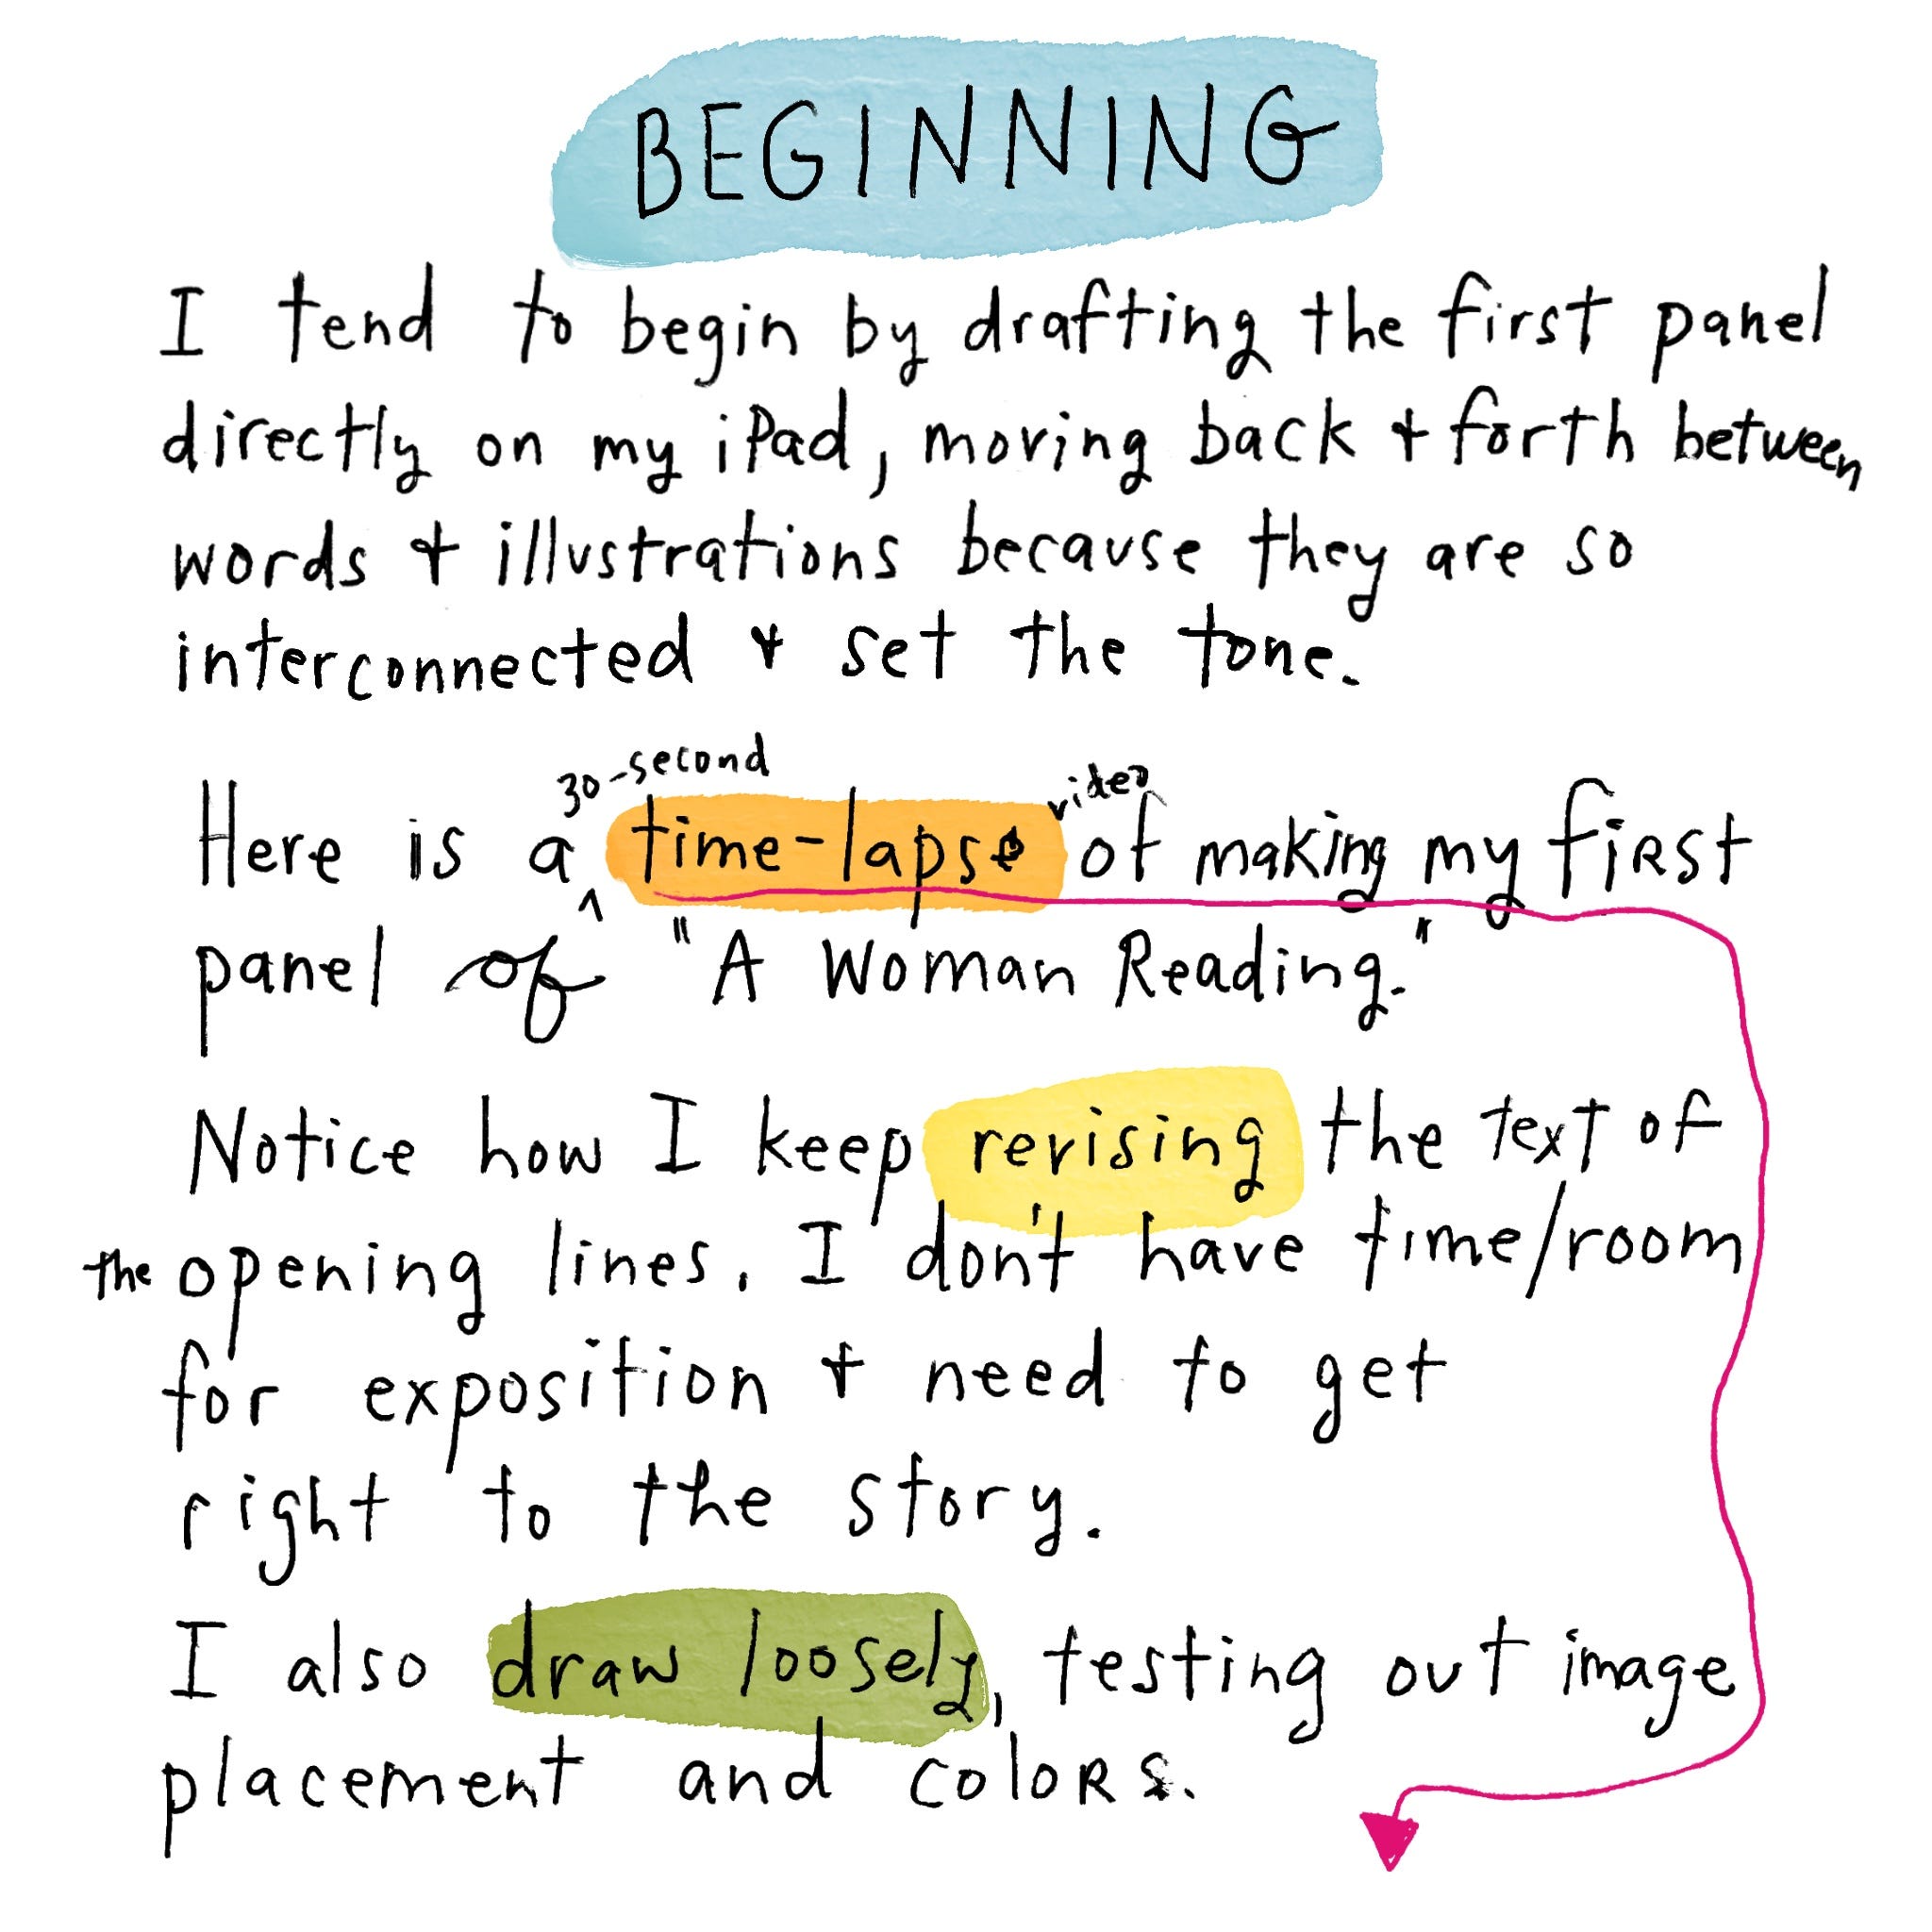 BEGINNING
I tend to begin by drafting the first panel
directly on my iPad, moving back + forth between
words + illustrations because they are so
interconnected + set the tone.
Here is a 30-second time-lapse video of making my first
panel of "A Woman Reading."
Notice how I keep revising the text of
the opening lines. I don't have time/room
for exposition + need to get
right to the story.
I also draw loosely, testing out image
placement and colors.